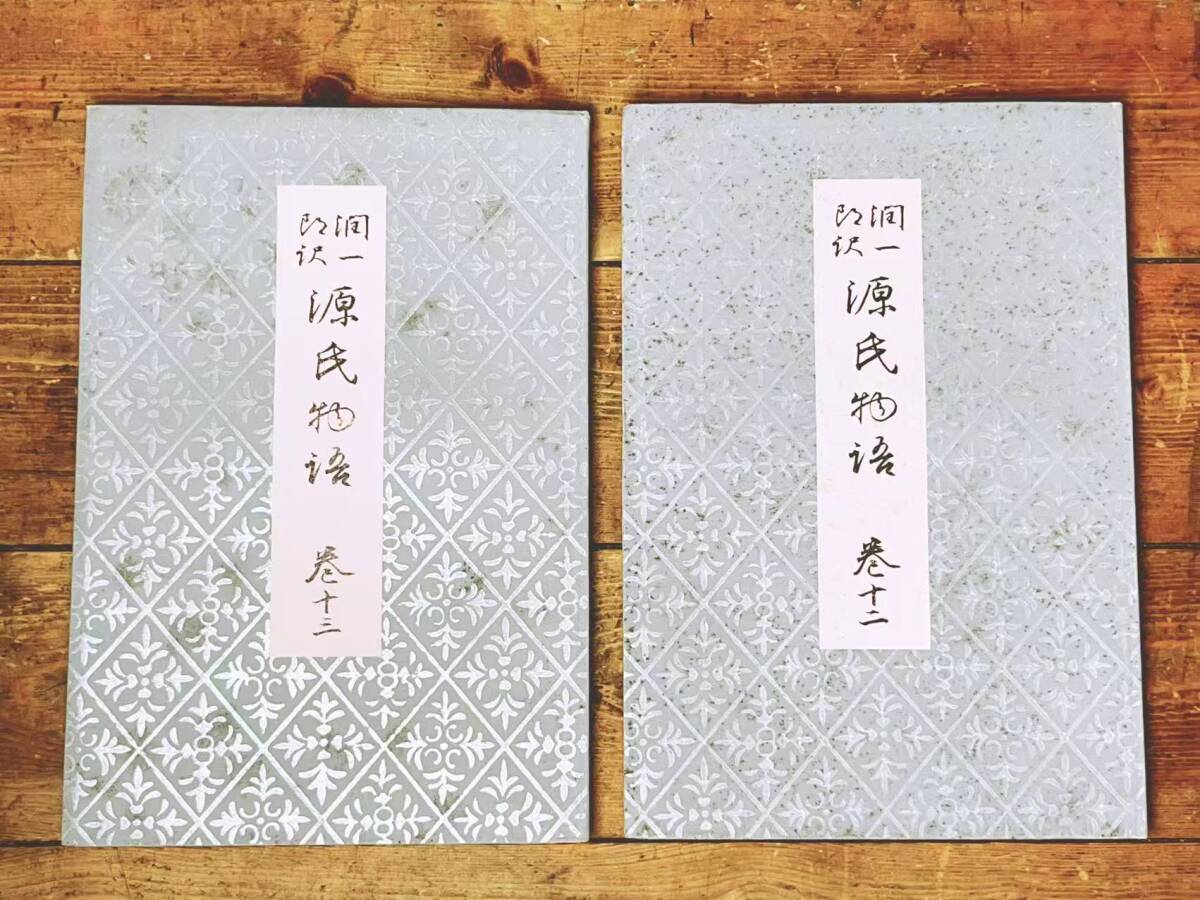 潤一
郎訳
源氏物語 巻十二
潤一
郎訳
源氏物語 巻十三